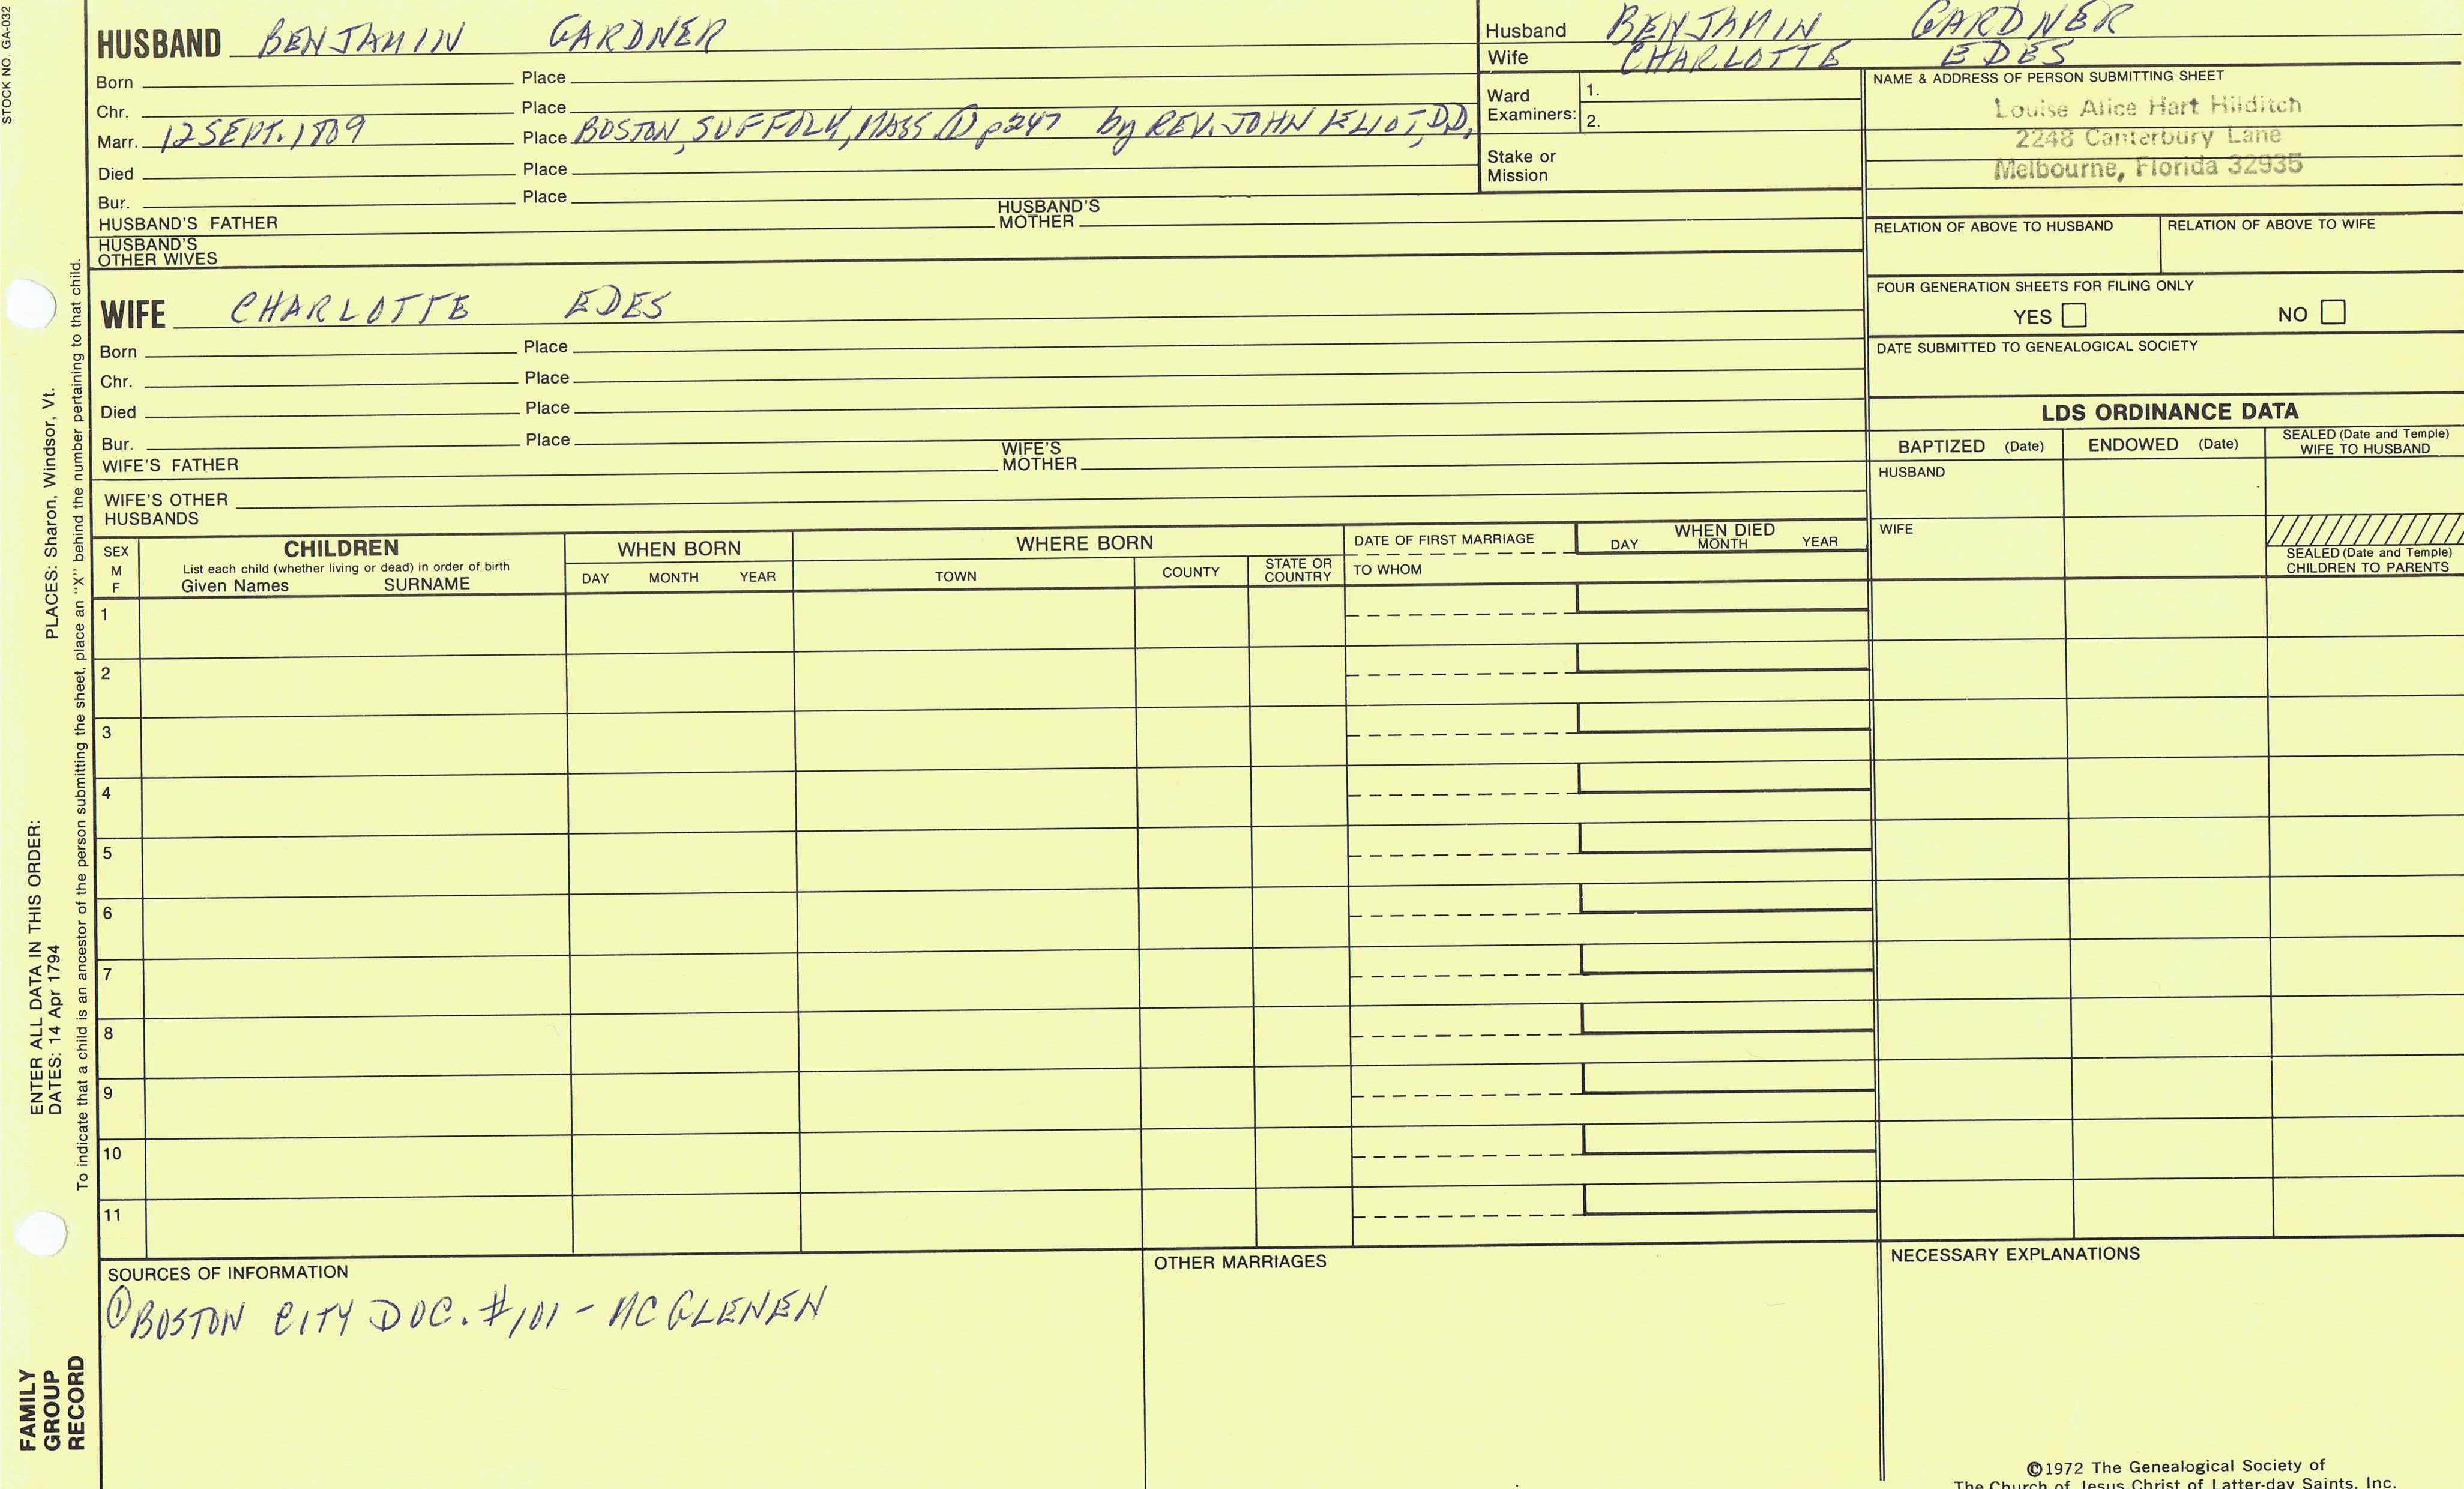 STOCK NO. GA-032
HUSBAND BENJAMIN GARDNER
Born Place
Chr. Place
Marr. 12 SEPT. 1809 Place BOSTON, SUFFOLK, MASS ① p247 by REV. JOHN ELIOT, D.D.
Died Place
Bur. Place
HUSBAND'S FATHER HUSBAND'S MOTHER
HUSBAND'S OTHER WIVES
Husband BENJAMIN GARDNER
Wife CHARLOTTE EDES
Ward Examiners: 1.
2.
Stake or Mission
NAME & ADDRESS OF PERSON SUBMITTING SHEET
Louise Alice Hart Hilditch
2248 Canterbury Lane
Melbourne, Florida 32935
RELATION OF ABOVE TO HUSBAND RELATION OF ABOVE TO WIFE
FOUR GENERATION SHEETS FOR FILING ONLY
YES NO
DATE SUBMITTED TO GENEALOGICAL SOCIETY
WIFE CHARLOTTE EDES
Born Place
Chr. Place
Died Place
Bur. Place
WIFE'S FATHER WIFE'S MOTHER
WIFE'S OTHER HUSBANDS
LDS ORDINANCE DATA
BAPTIZED (Date) ENDOWED (Date) SEALED (Date and Temple) WIFE TO HUSBAND
HUSBAND
WIFE
SEALED (Date and Temple) CHILDREN TO PARENTS
SEX M F
CHILDREN
List each child (whether living or dead) in order of birth
Given Names SURNAME
WHEN BORN
DAY MONTH YEAR
WHERE BORN
TOWN COUNTY STATE OR COUNTRY
DATE OF FIRST MARRIAGE
TO WHOM
WHEN DIED
DAY MONTH YEAR
1
2
3
4
5
6
7
8
9
10
11
SOURCES OF INFORMATION
① BOSTON CITY DOC. #101 - MCGLENEN
OTHER MARRIAGES
NECESSARY EXPLANATIONS
©1972 The Genealogical Society of
The Church of Jesus Christ of Latter-day Saints, Inc.
ENTER ALL DATA IN THIS ORDER:
DATES: 14 Apr 1794 PLACES: Sharon, Windsor, Vt.
To indicate that a child is an ancestor of the person submitting the sheet, place an "X" behind the number pertaining to that child.
FAMILY
GROUP
RECORD